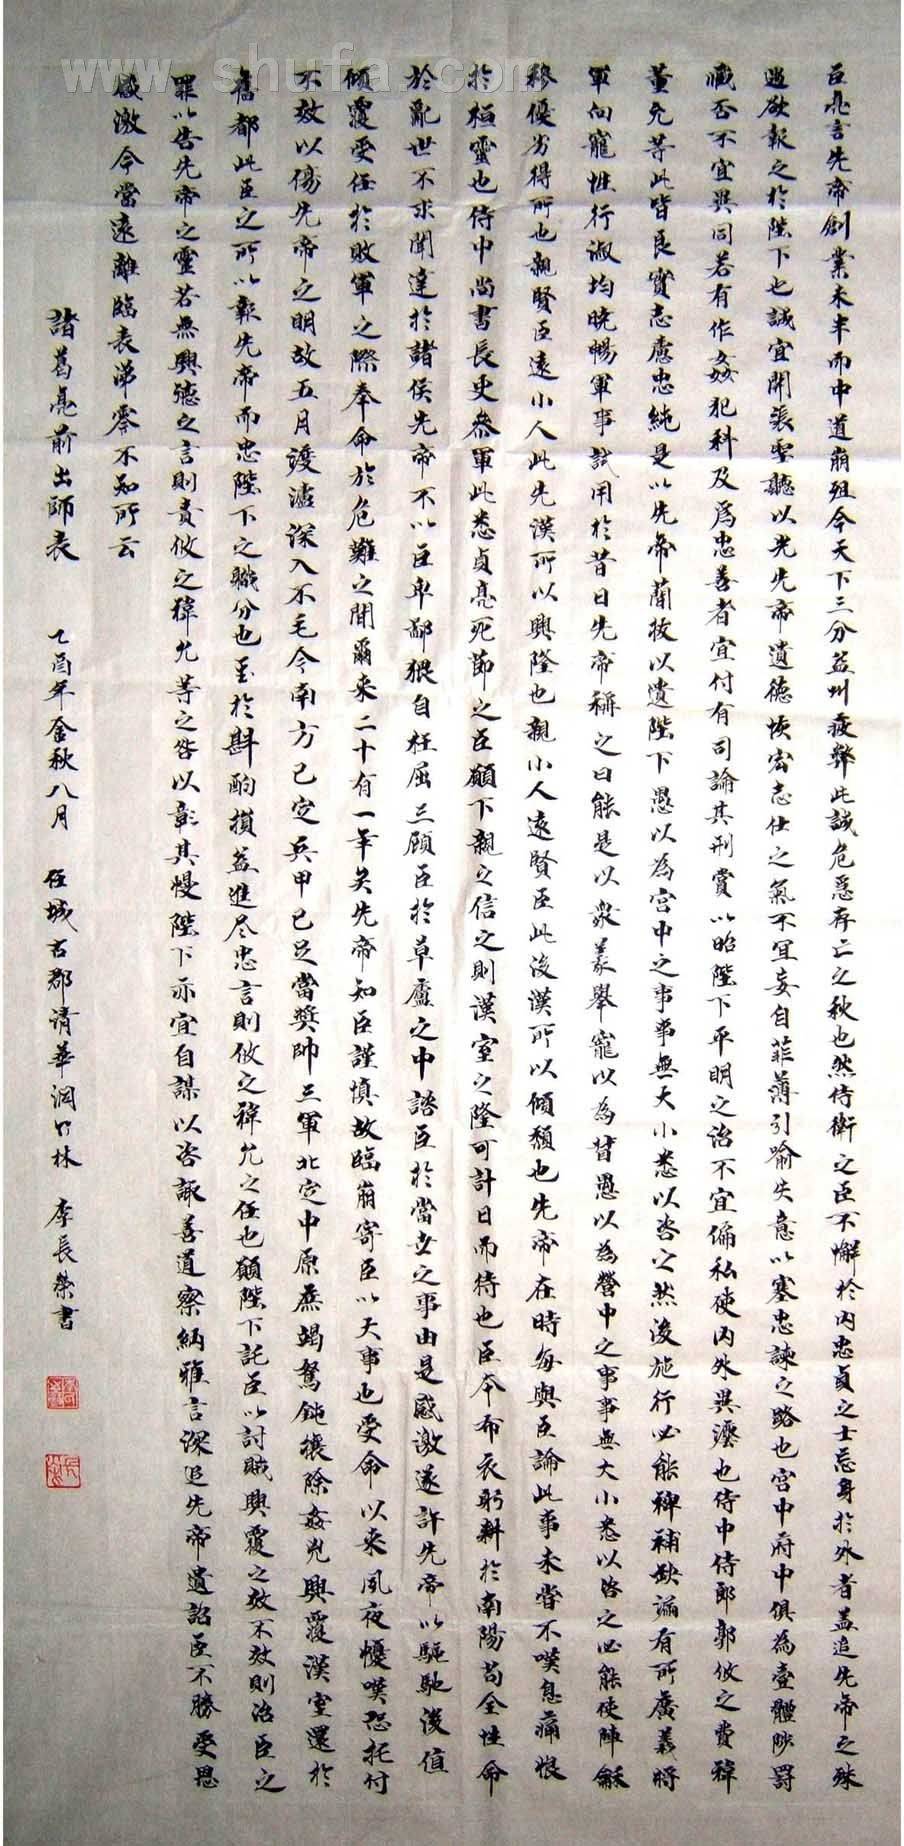 www.shufa.com
臣亮言先帝創業未半而中道崩殂今天下三分益州疲弊此誠危急存亡之秋也然侍衛之臣不懈於內忠貞之士忘身於外者盖追先帝之殊
遇欲報之於陛下也誠宜開張聖聽以光先帝遺德恢宏志仕之氣不宜妄自菲薄引喻失意以塞忠諫之路也宮中府中俱為壹體陟罰
臧否不宜異同若有作姦犯科及為忠善者宜付有司論其刑賞以昭陛下平明之治不宜偏私使內外異灋也侍中侍郎郭攸之費禕
董允等此皆良實志慮忠純是以先帝蘭拔以遺陛下愚以為宮中之事事無大小悉以咨之然後施行必能裨補缺漏有所廣義將
軍向寵性行淑均曉暢軍事試用於昔日先帝稱之曰能是以衆義舉寵以為督愚以為營中之事事無大小悉以咨之必能使陣龢
穆優劣得所也親賢臣遠小人此先漢所以興隆也親小人遠賢臣此後漢所以傾頹也先帝在時每與臣論此事未嘗不嘆息痛恨
於桓靈也侍中尚書長史參軍此悉貞亮死節之臣願下親之信之則漢室之隆可計日而待也臣本布衣躬耕於南陽苟全性命
於亂世不求聞達於諸侯先帝不以臣卑鄙猥自枉屈三顧臣於草廬之中諮臣於當世之事由是感激遂許先帝以驅馳後值
傾覆受任於敗軍之際奉命於危難之間爾來二十有一年矣先帝知臣謹慎故臨崩寄臣以大事也受命以來夙夜懮嘆恐托付
不效以傷先帝之明故五月渡瀘深入不毛今南方已定兵甲已足當獎帥三軍北定中原庶竭駑鈍攘除姦兇興覆漢室還於
舊都此臣之所以報先帝而忠陛下之職分也至於斟酌損益進尽忠言則攸之禕允之任也願陛下託臣以討賊興覆之效不效則治臣之
罪以告先帝之靈若無興德之言則責攸之禕允等之咎以彰其慢陛下亦宜自謀以咨諏善道察納雅言深追先帝遺詔臣不勝受恩
感激今當遠離臨表涕零不知所云
諸葛亮前出師表 乙酉年金秋八月 任城古郡清華洞竹林 李長榮書